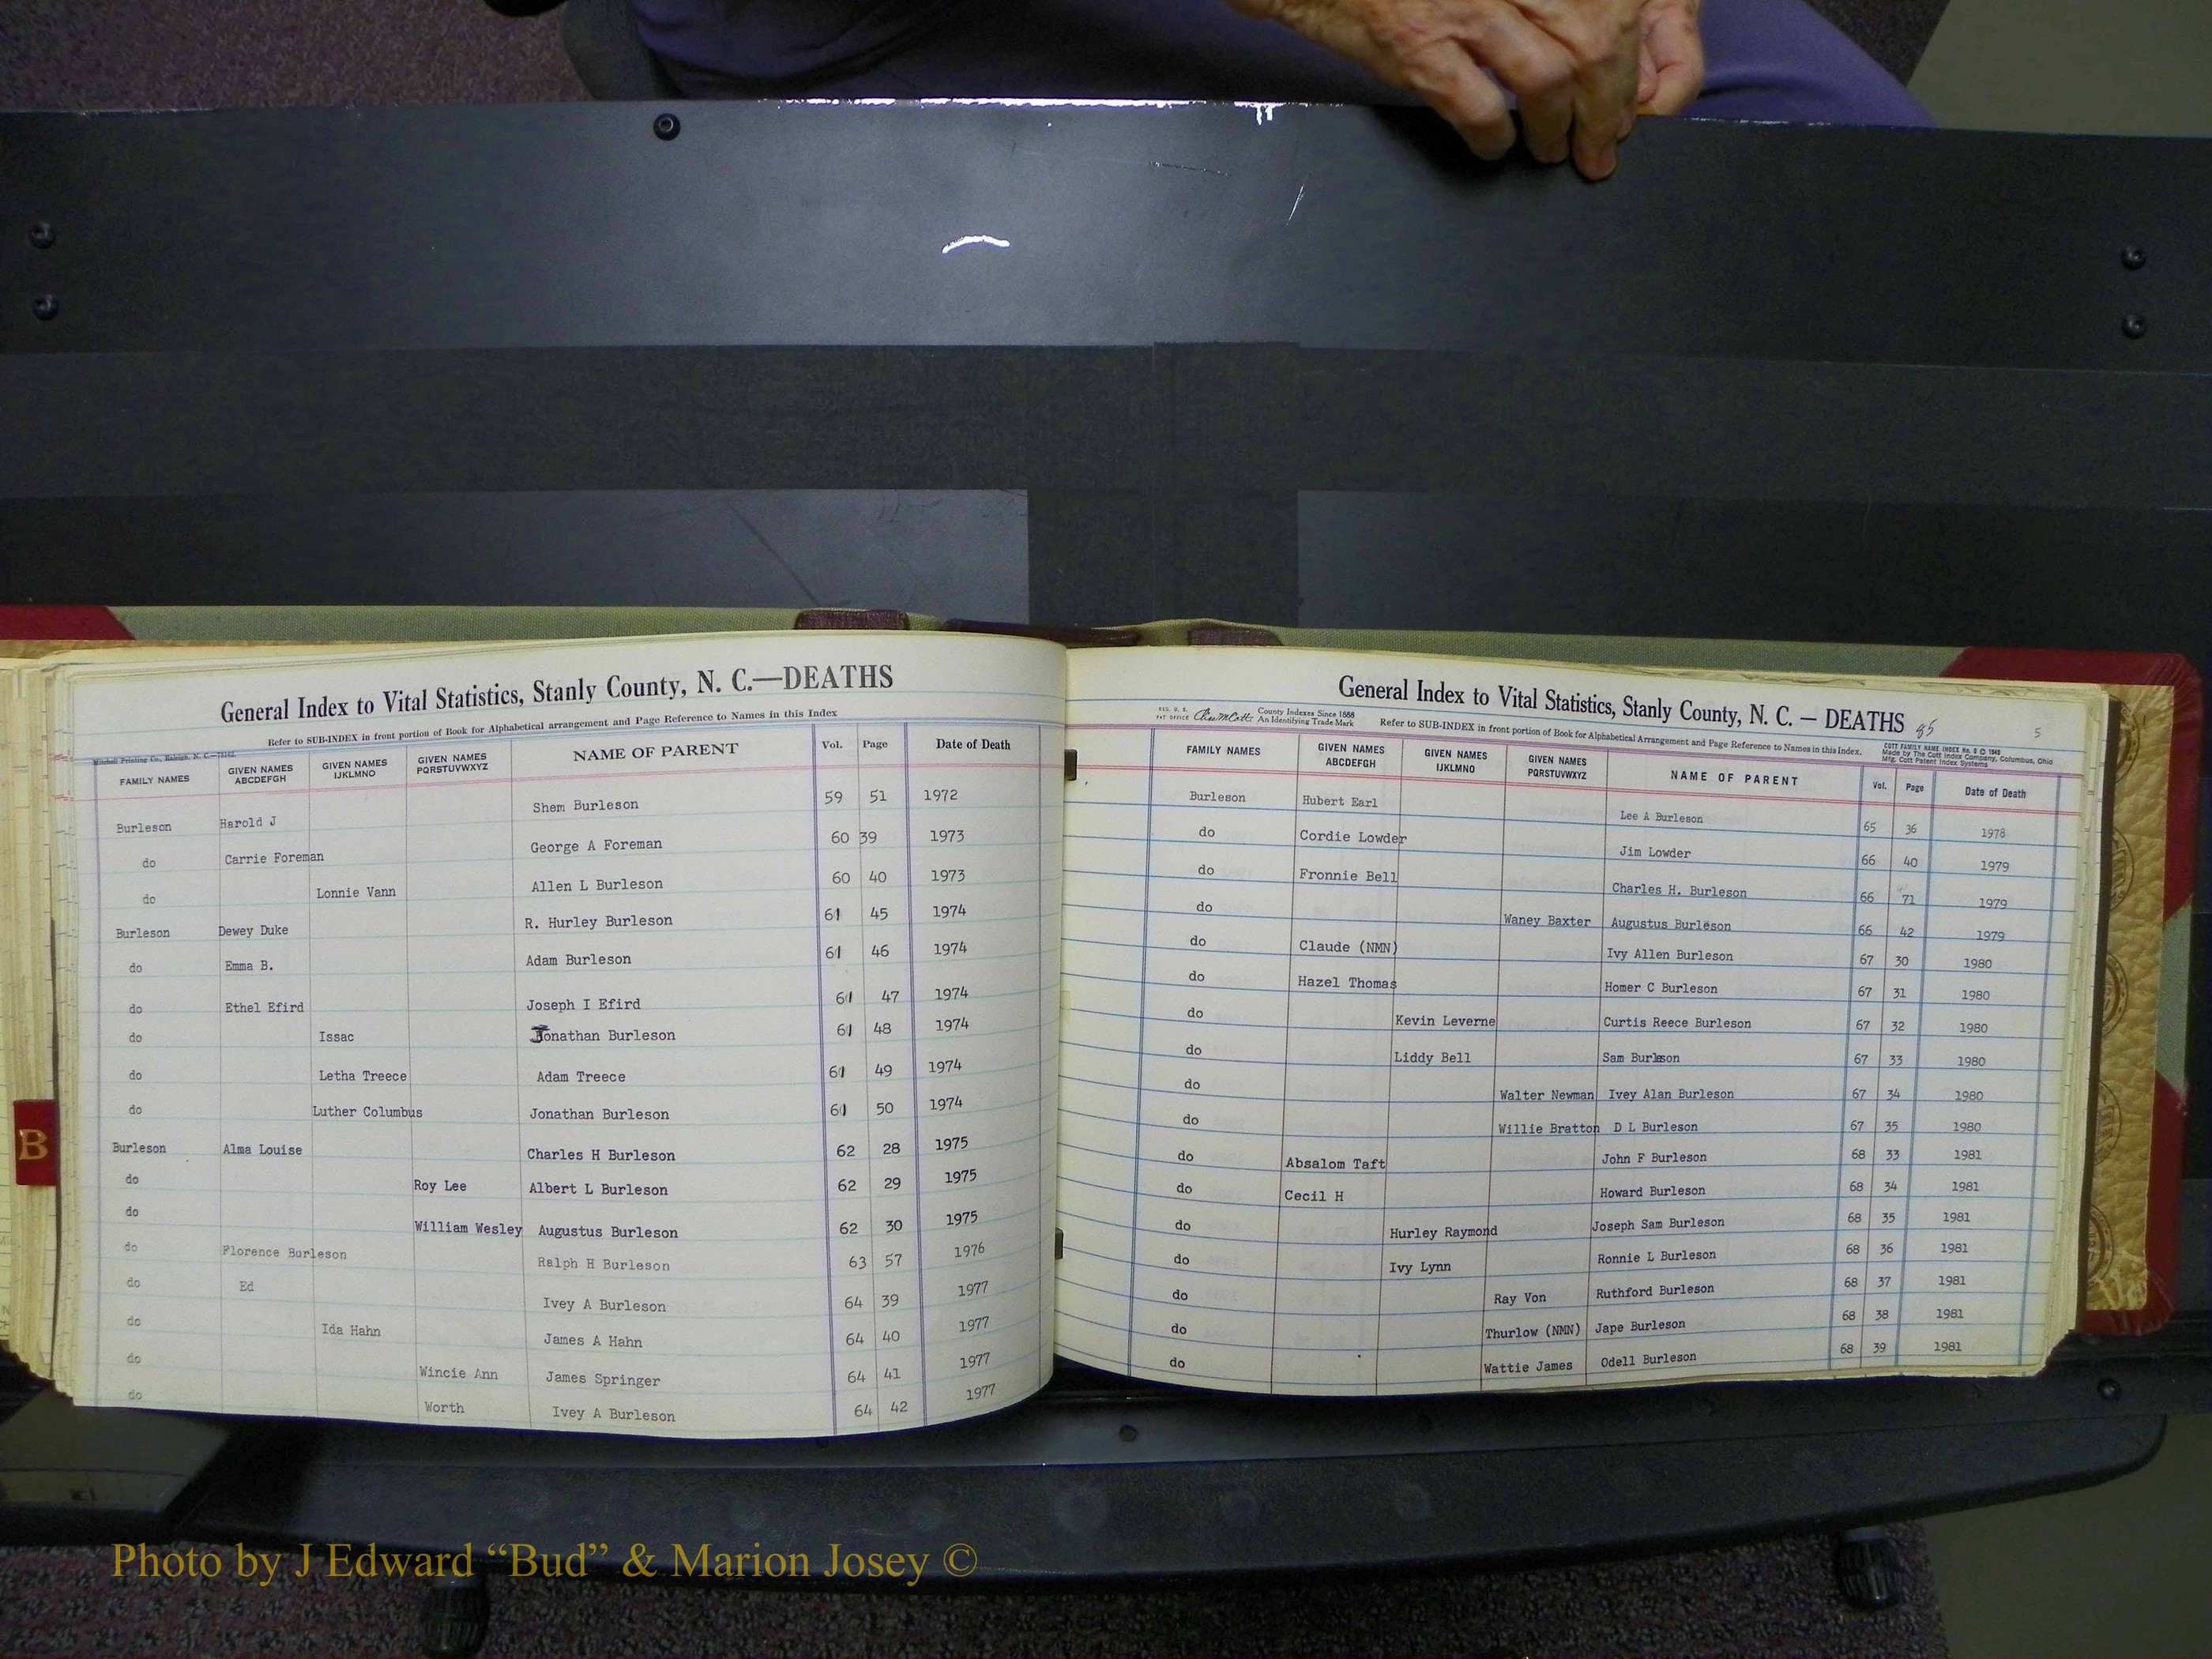 General Index to Vital Statistics, Stanly County, N. C.—DEATHS
Refer to SUB-INDEX in front portion of Book for Alphabetical arrangement and Page Reference to Names in this Index
Mitchell Printing Co., Raleigh, N. C.
FAMILY NAMES GIVEN NAMES ABCDEFGH GIVEN NAMES IJKLMNO GIVEN NAMES PQRSTUVWXYZ NAME OF PARENT Vol. Page Date of Death
Burleson Harold J Shem Burleson 59 51 1972
do Carrie Foreman George A Foreman 60 39 1973
do Lonnie Vann Allen L Burleson 60 40 1973
Burleson Dewey Duke R. Hurley Burleson 61 45 1974
do Emma B. Adam Burleson 61 46 1974
do Ethel Efird Joseph I Efird 61 47 1974
do Issac Jonathan Burleson 61 48 1974
do Letha Treece Adam Treece 61 49 1974
do Luther Columbus Jonathan Burleson 61 50 1974
Burleson Alma Louise Charles H Burleson 62 28 1975
do Roy Lee Albert L Burleson 62 29 1975
do William Wesley Augustus Burleson 62 30 1975
do Florence Burleson Ralph H Burleson 63 57 1976
do Ed Ivey A Burleson 64 39 1977
do Ida Hahn James A Hahn 64 40 1977
do Wincie Ann James Springer 64 41 1977
do Worth Ivey A Burleson 64 42 1977
B
General Index to Vital Statistics, Stanly County, N. C. — DEATHS 85
5
REG. U. S. PAT OFFICE County Indexes Since 1888 An Identifying Trade Mark
Refer to SUB-INDEX in front portion of Book for Alphabetical Arrangement and Page Reference to Names in this Index.
COTT FAMILY NAME INDEX
Made by The Cott Index Company, Columbus, Ohio
Mfg. Cott Patent Index Systems
FAMILY NAMES GIVEN NAMES ABCDEFGH GIVEN NAMES IJKLMNO GIVEN NAMES PQRSTUVWXYZ NAME OF PARENT Vol. Page Date of Death
Burleson Hubert Earl Lee A Burleson 65 36 1978
do Cordie Lowder Jim Lowder 66 40 1979
do Fronnie Bell Charles H. Burleson 66 71 1979
do Waney Baxter Augustus Burleson 66 42 1979
do Claude (NMN) Ivy Allen Burleson 67 30 1980
do Hazel Thomas Homer C Burleson 67 31 1980
do Kevin Leverne Curtis Reece Burleson 67 32 1980
do Liddy Bell Sam Burleson 67 33 1980
do Walter Newman Ivey Alan Burleson 67 34 1980
do Willie Bratton D L Burleson 67 35 1980
do Absalom Taft John F Burleson 68 33 1981
do Cecil H Howard Burleson 68 34 1981
do Hurley Raymond Joseph Sam Burleson 68 35 1981
do Ivy Lynn Ronnie L Burleson 68 36 1981
do Ray Von Ruthford Burleson 68 37 1981
do Thurlow (NMN) Jape Burleson 68 38 1981
do Wattie James Odell Burleson 68 39 1981
Photo by J Edward “Bud” & Marion Josey ©